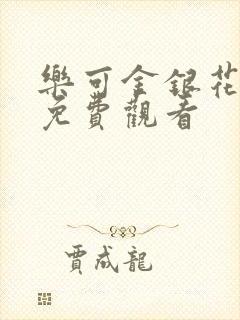 樂可金銀花
免費觀看
賈成龍